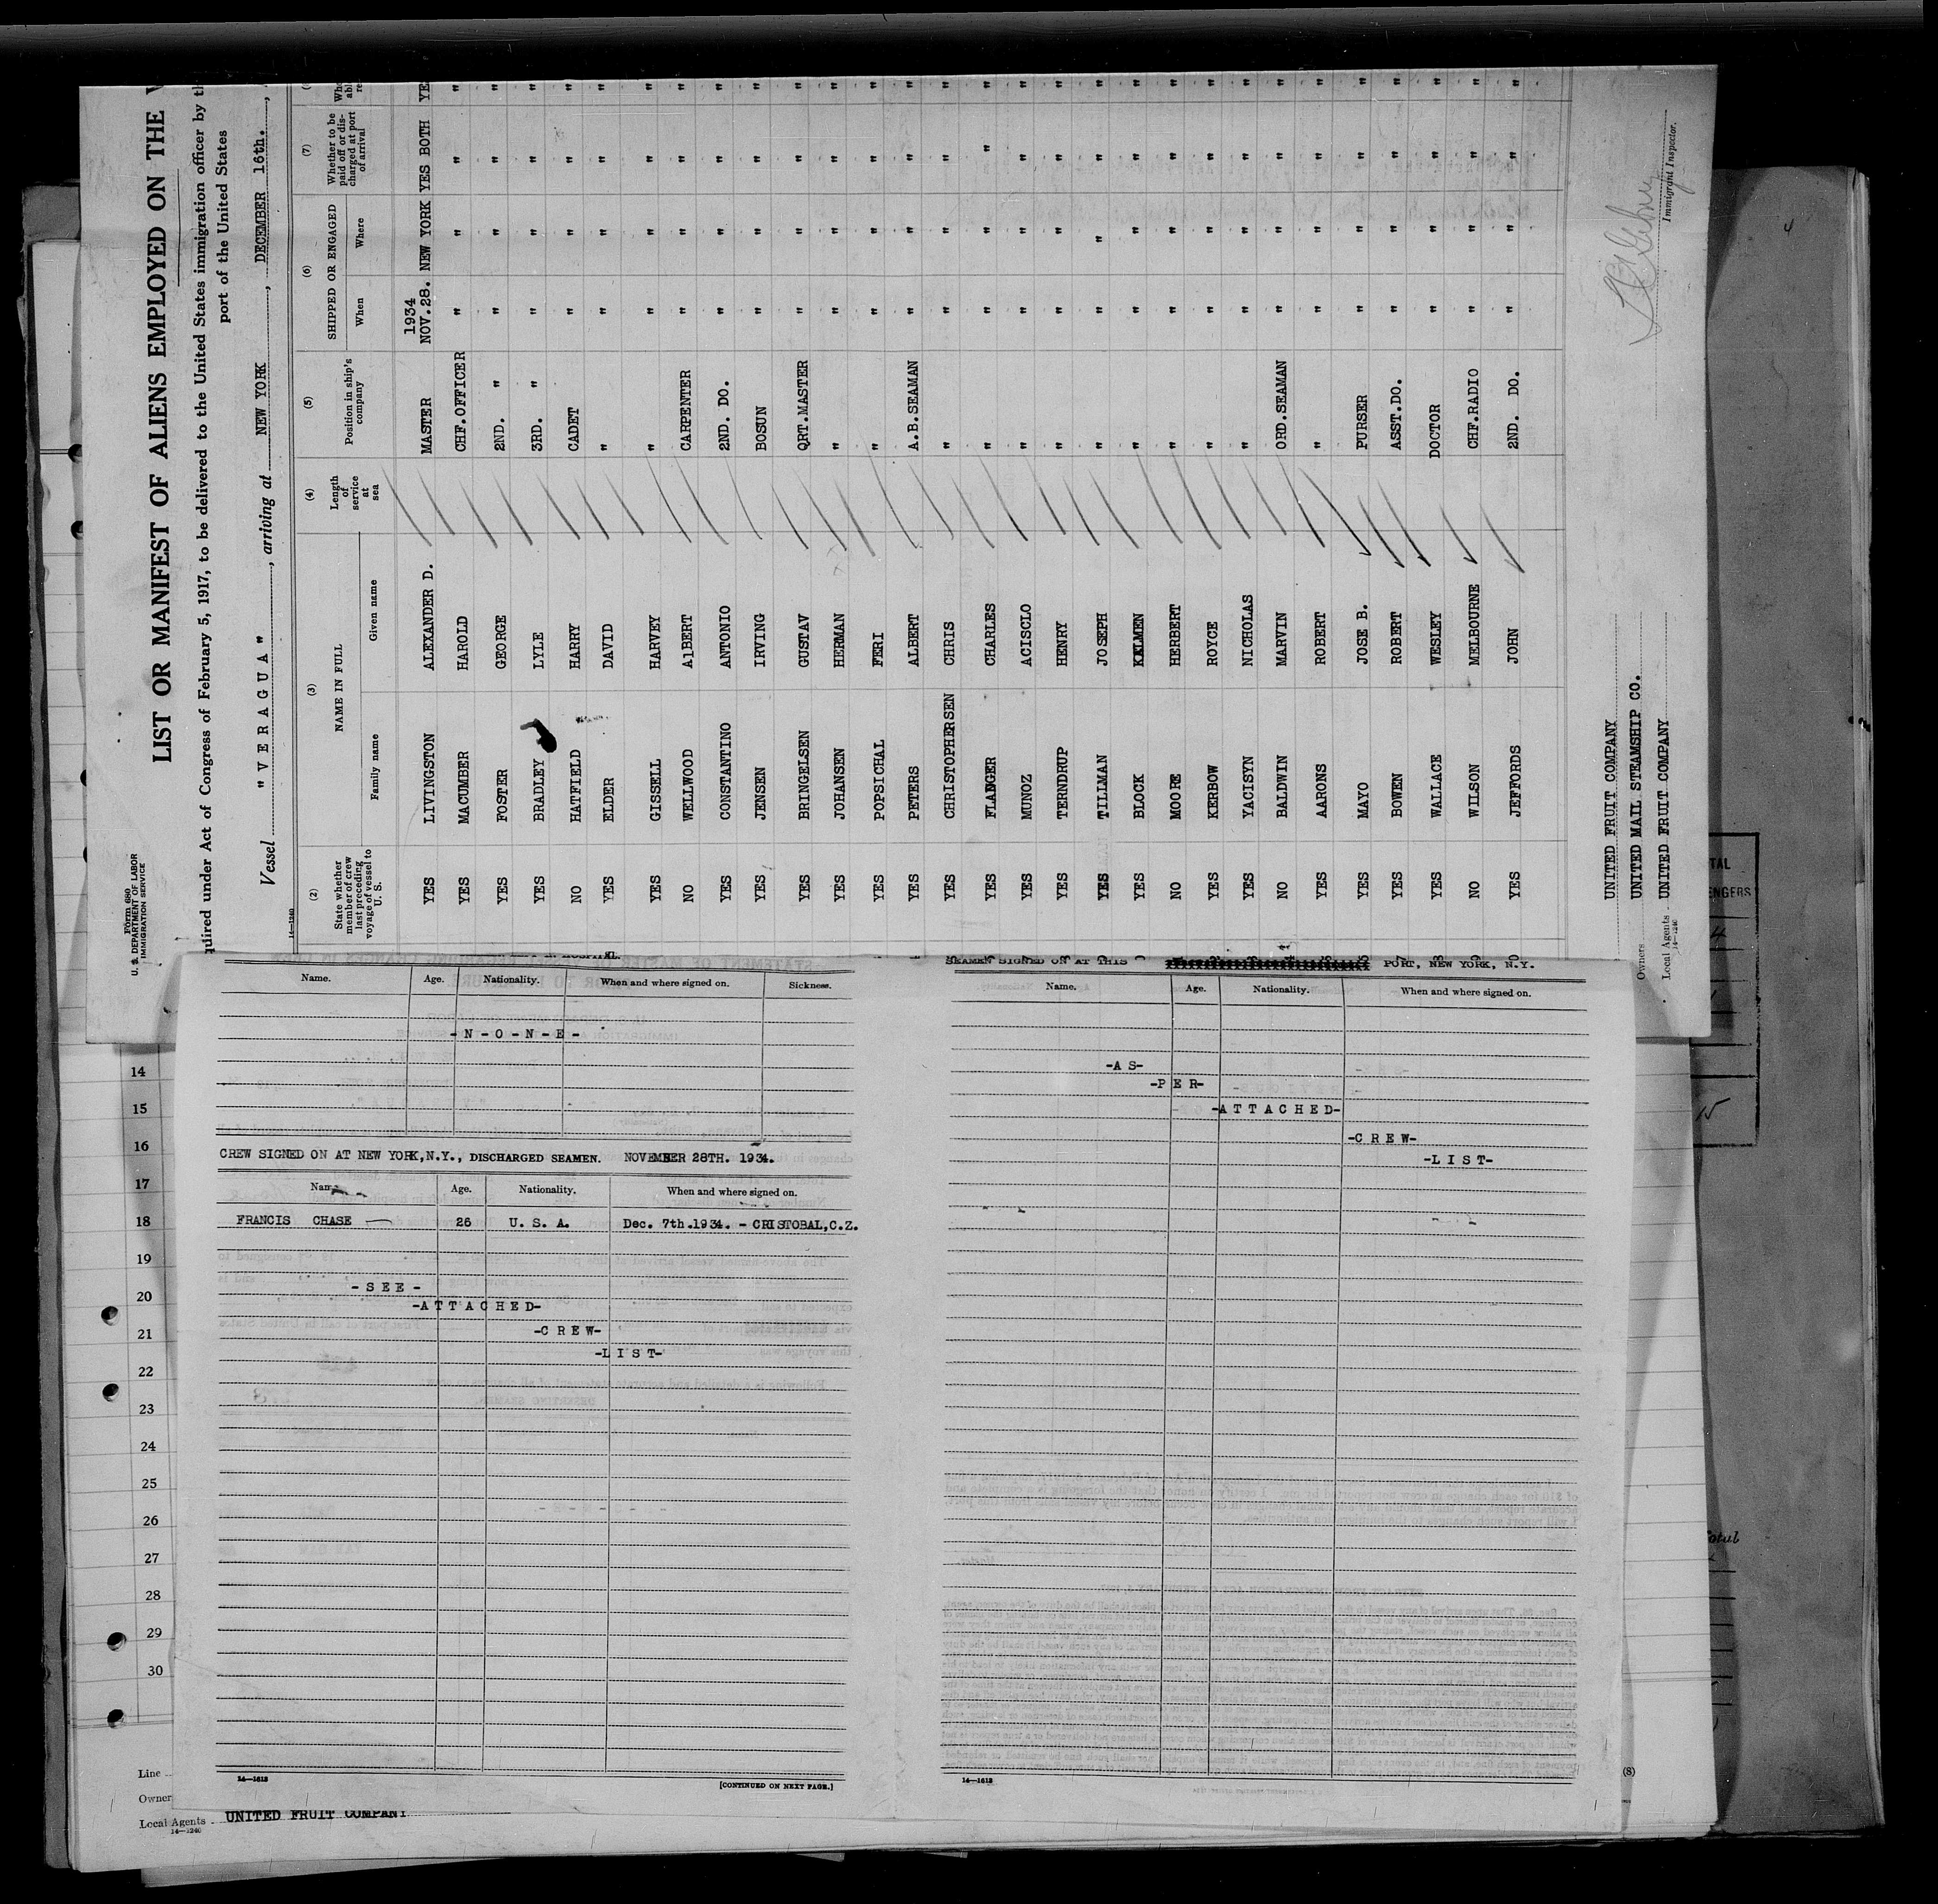 Form 680
U. S. DEPARTMENT OF LABOR
IMMIGRATION SERVICE
LIST OR MANIFEST OF ALIENS EMPLOYED ON THE
quired under Act of Congress of February 5, 1917, to be delivered to the United States immigration officer by th
port of the United States
Vessel "VERAGUA", arriving at NEW YORK, DECEMBER 16th.,
14—1240
(2) (3) (4) (5) (6) (7)
State whether member of crew last preceding voyage of vessel to U. S.
NAME IN FULL
Family name Given name
Length of service at sea
Position in ship's company
SHIPPED OR ENGAGED
When Where
Whether to be paid off or discharged at port of arrival
1934
YES LIVINGSTON ALEXANDER D. MASTER NOV.28. NEW YORK YES BOTH YE
YES MACUMBER HAROLD CHF.OFFICER " " " "
YES FOSTER GEORGE 2ND. " " " " "
YES BRADLEY LYLE 3RD. " " " " "
NO HATFIELD HARRY CADET " " " "
YES ELDER DAVID " " " " "
YES GISSELL HARVEY " " " " "
NO WELLWOOD AlBERT CARPENTER " " " "
YES CONSTANTINO ANTONIO 2ND. DO. " " " "
YES JENSEN IRVING BOSUN " " " "
YES BRINGELSEN GUSTAV QRT.MASTER " " " "
YES JOHANSEN HERMAN " " " " "
YES POPSICHAL FERI " " " " "
YES PETERS ALBERT A.B.SEAMAN " " " "
YES CHRISTOPHERSEN CHRIS " " " " "
YES FLANGER CHARLES " " " " "
YES MUNOZ ACISCLO " " " " "
YES TERNDRUP HENRY " " " " "
YES TILLMAN JOSEPH " " " " "
YES BLOCK KALMEN " " " " "
NO MOORE HERBERT " " " " "
YES KERBOW ROYCE " " " " "
YES YACISYN NICHOLAS " " " " "
NO BALDWIN MARVIN ORD.SEAMAN " " " "
YES AARONS ROBERT " " " " "
YES MAYO JOSE B. PURSER " " " "
YES BOWEN ROBERT ASST.DO. " " " "
YES WALLACE WESLEY DOCTOR " " " "
NO WILSON MELBOURNE CHF.RADIO " " " "
YES JEFFORDS JOHN 2ND. DO. " " " "
UNITED FRUIT COMPANY
Owners UNITED MAIL STEAMSHIP CO.
Local Agents UNITED FRUIT COMPANY
14—1240
Immigrant Inspector.
Name. Age. Nationality. When and where signed on. Sickness.
-N-O-N-E-
CREW SIGNED ON AT NEW YORK,N.Y., DISCHARGED SEAMEN. NOVEMBER 28TH. 1934.
Name Age. Nationality. When and where signed on.
FRANCIS CHASE 26 U. S. A. Dec. 7th.1934. - CRISTOBAL,C.Z.
-SEE-
-ATTACHED-
-CREW-
-LIST-
14—1613
[CONTINUED ON NEXT PAGE.]
SEAMEN SIGNED ON AT THIS PORT, NEW YORK, N.Y.
Name. Age. Nationality. When and where signed on.
-AS-
-PER-
-ATTACHED-
-CREW-
-LIST-
14—1613
14
15
16
17
18
19
20
21
22
23
24
25
26
27
28
29
30
Line
Owner
Local Agents UNITED FRUIT COMPANY
14—1240
(8)
TAL
NGERS
4
15
otal